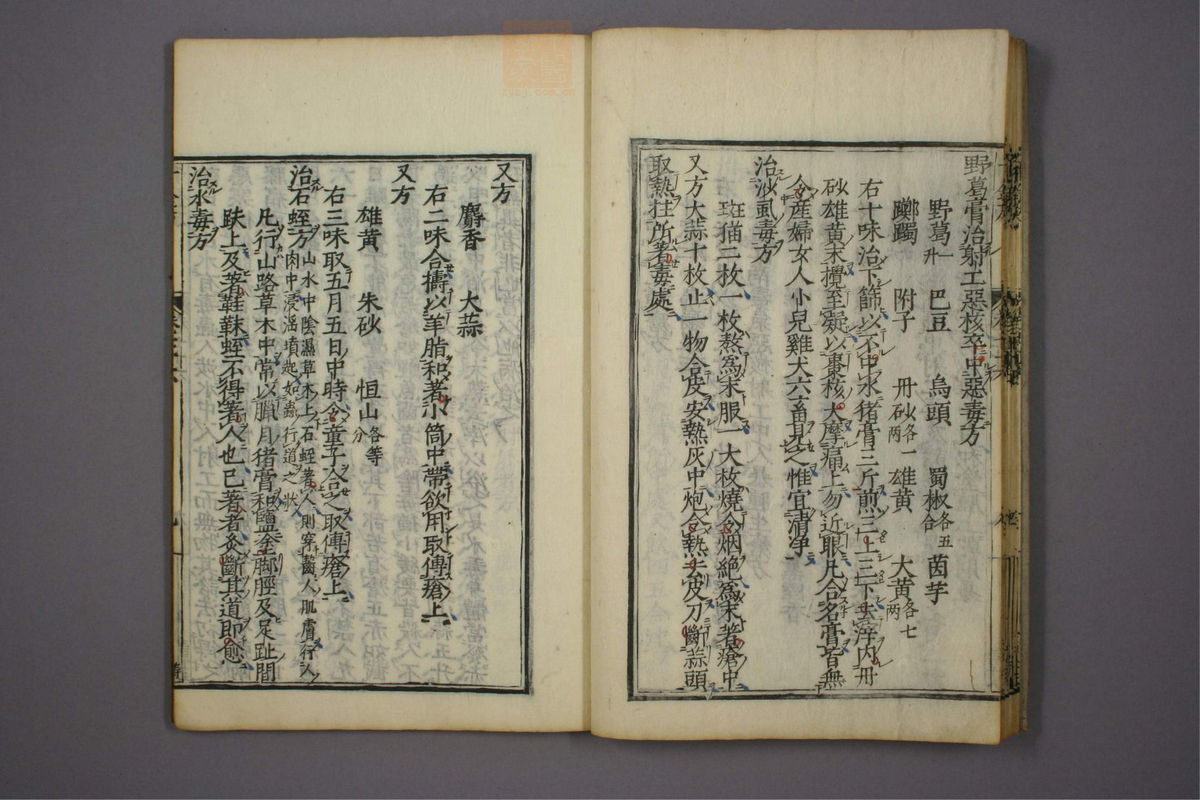 野葛膏治射工惡核卒中惡毒方
野葛一升 巴豆 烏頭 蜀椒各五合 茵芋
躑躅 附子 丹砂各一兩 雄黃 大黃各七兩
右十味治下篩以不中水猪膏三斤煎三上三下去滓内丹
砂雄黃末攪至凝以棗核大摩痛上勿近眼凡合名膏皆無
令産婦女人小兒雞犬六畜見之惟宜清净
治沙虱毒方
斑猫二枚一枚熬爲末服一大枚燒令烟絶爲末著瘡中
又方大蒜十枚止一物合皮安熱灰中炮令熱去皮刀斷蒜頭
取熱拄所著毒處
又方
麝香 大蒜
右二味合擣以羊脂和著小筒中帶欲用取傅瘡上
又方
雄黃 朱砂 恒山各等分
右三味取五月五日中時令童子合之取傅瘡上
治石蛭方山水中陰濕草木上石蛭著人則穿齧人肌膚行人
肉中浸滛墳起如蟲行道之狀
凡行山路草木中常以臘月猪膏和鹽塗脚脛及足趾間
趺上及著鞋韈蛭不得著人也已著者灸斷其道即愈
治水毒方